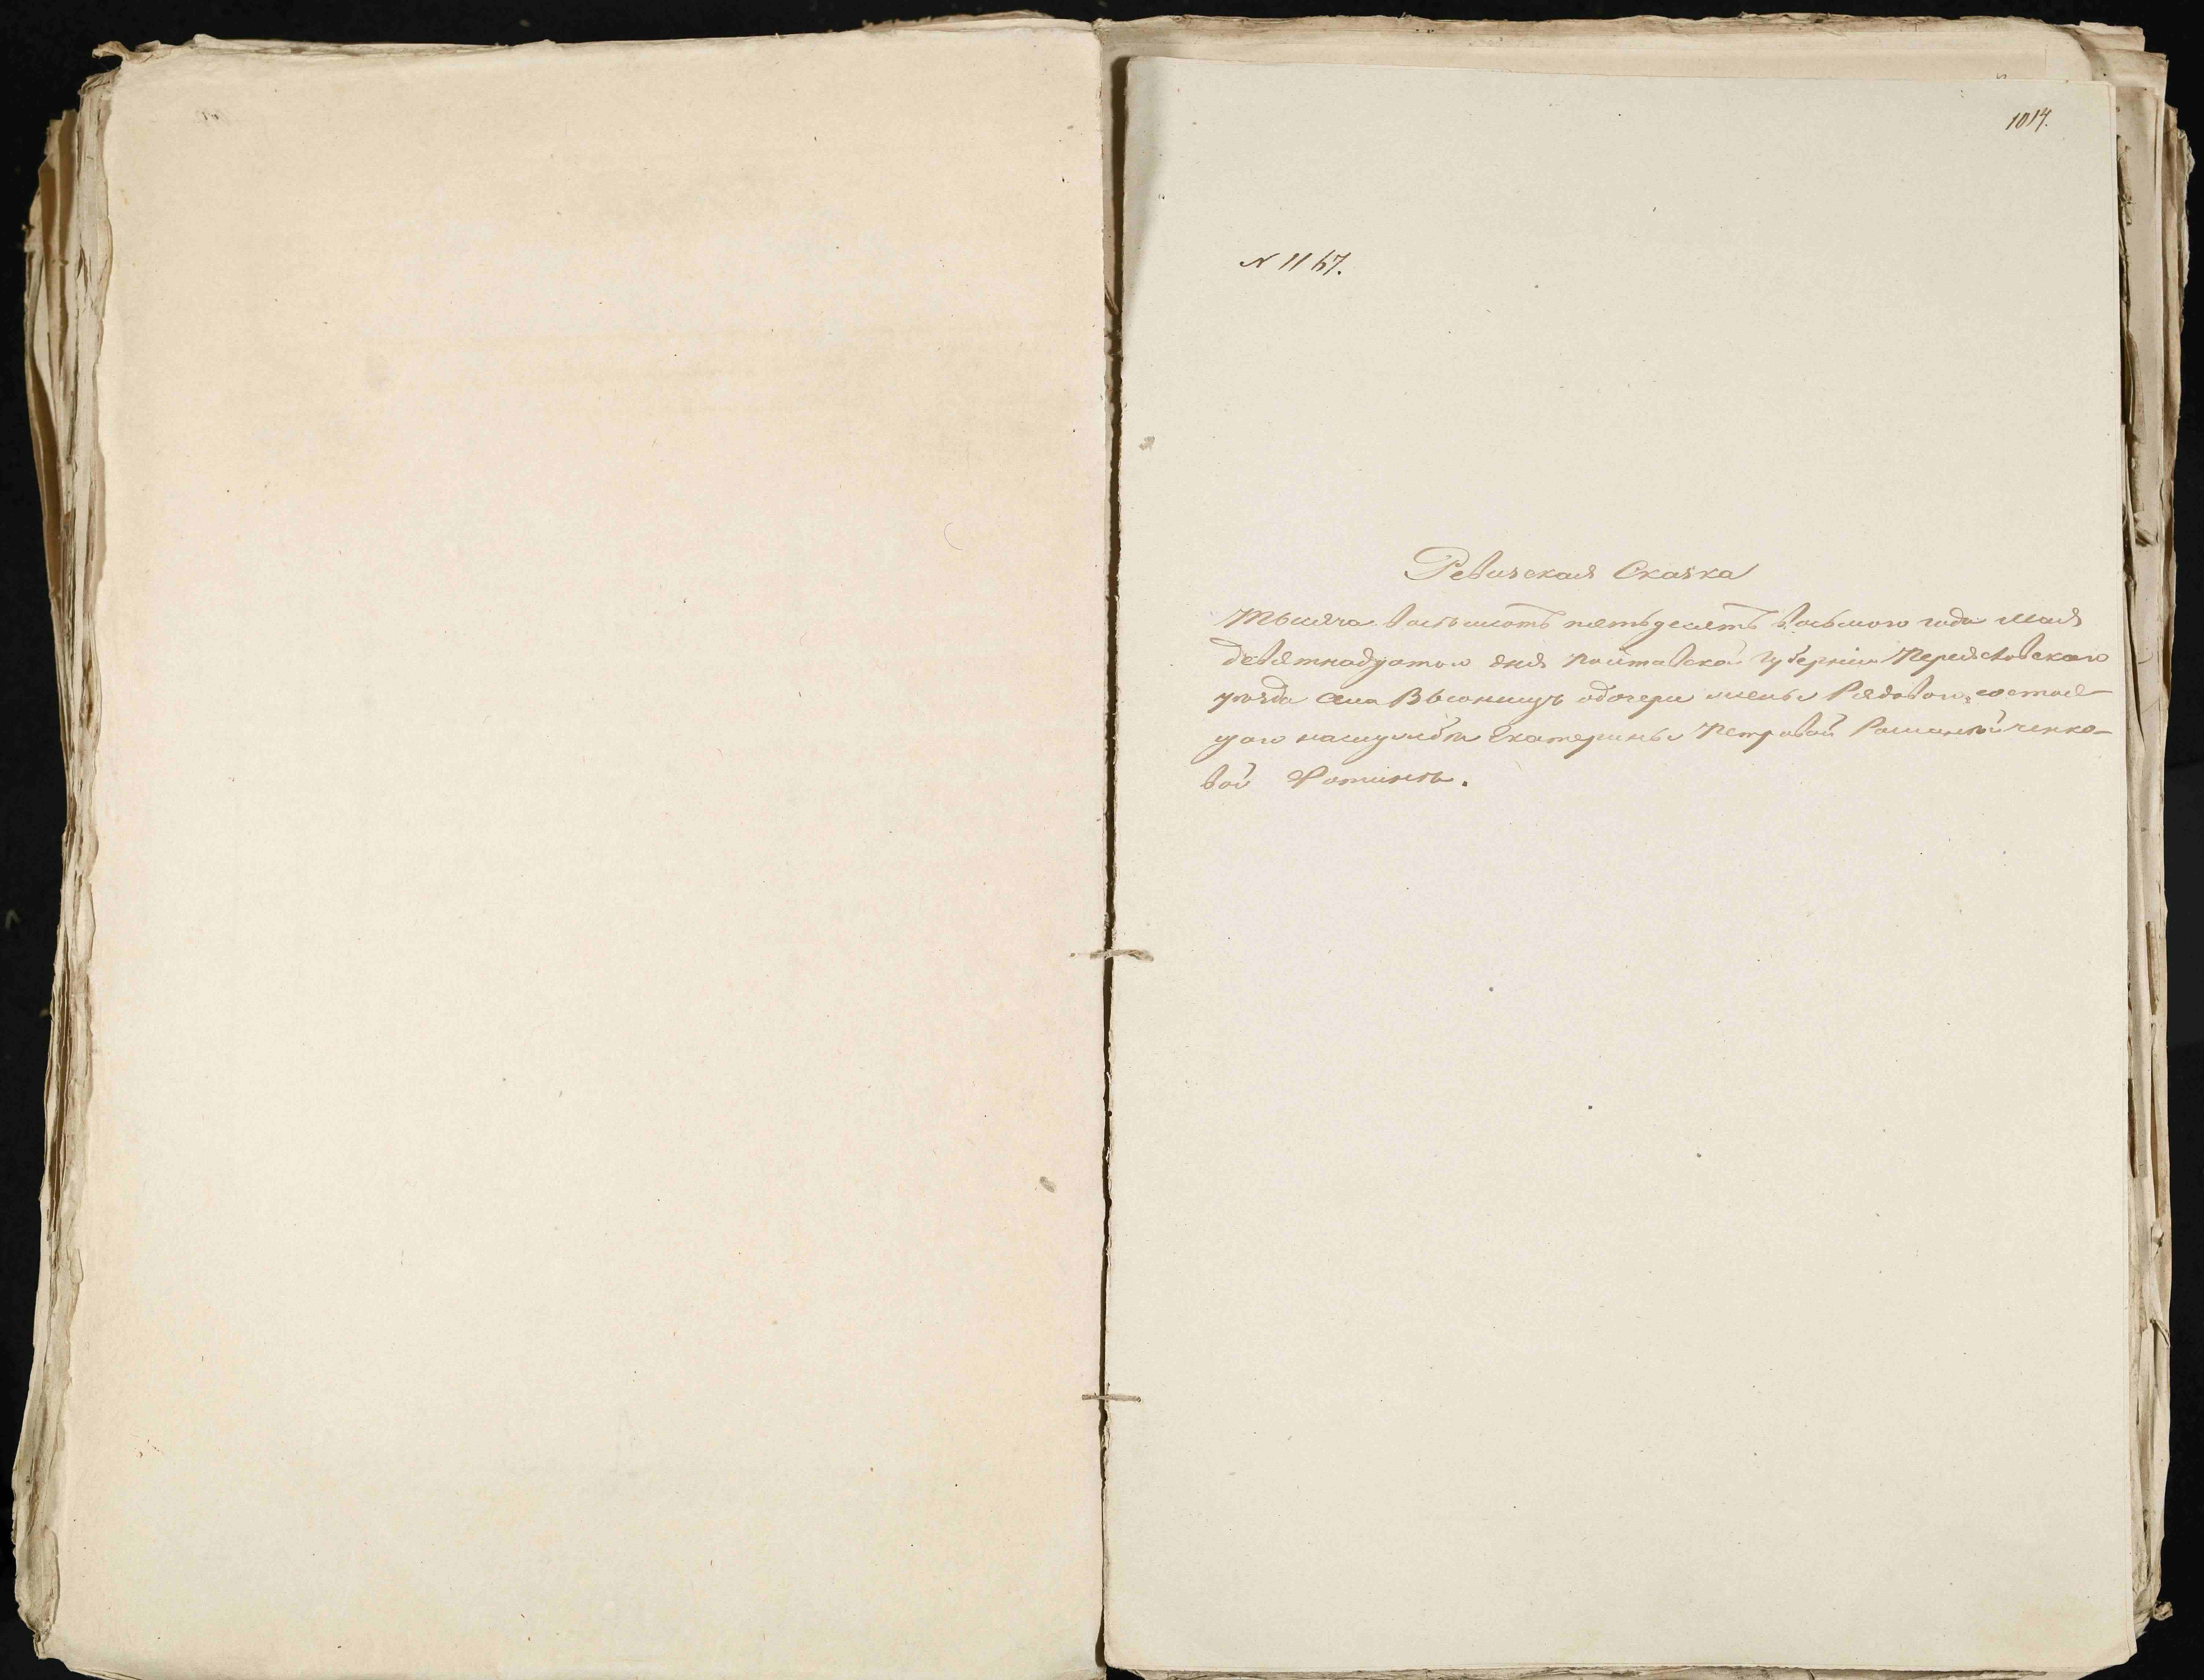 1014.
N 1167.
Ревизская Сказка
Тысяча восемьсотъ пятьдесятъ восьмого года Мая
девятнадцатого дня Полтавской губерніи Переяславского
уѣзда села Вьюнищъ о дочери жены Рядового, состоя-
щаго на службѣ Екатерины Петровой
вой Фотинѣ.